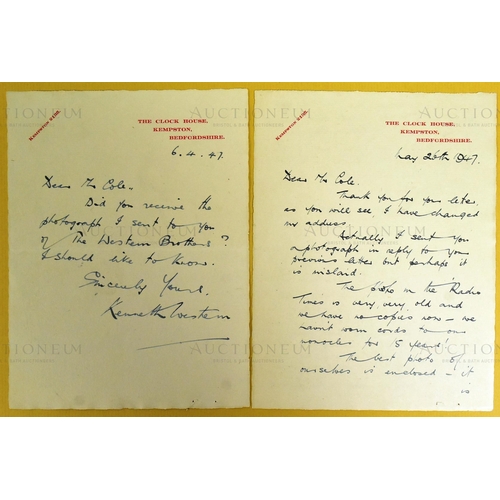 AUCTIONEUM
KEMPSTON
THE CLOCK HOUSE,
KEMPSTON,
BEDFORDSHIRE.
6.4.47.
Dear Mr Cole.
Did you receive the
photograph I sent to you
of The Western Brothers?
I should like to know.
Sincerely Yours.
Kenneth Western
KEMPSTON
THE CLOCK HOUSE,
KEMPSTON,
BEDFORDSHIRE.
May 26th 1947.
Dear Mr Cole.
Thank you for your letter,
as you will see, I have changed
my address.
Actually I sent you
a photograph in reply to your
previous letter but perhaps it
is mislaid.
The in the Radio
Times is very very old and
we have no copies now - we
haven't worn cords on our
monocles for 5 years!
The best photo of
ourselves is enclosed - it
is